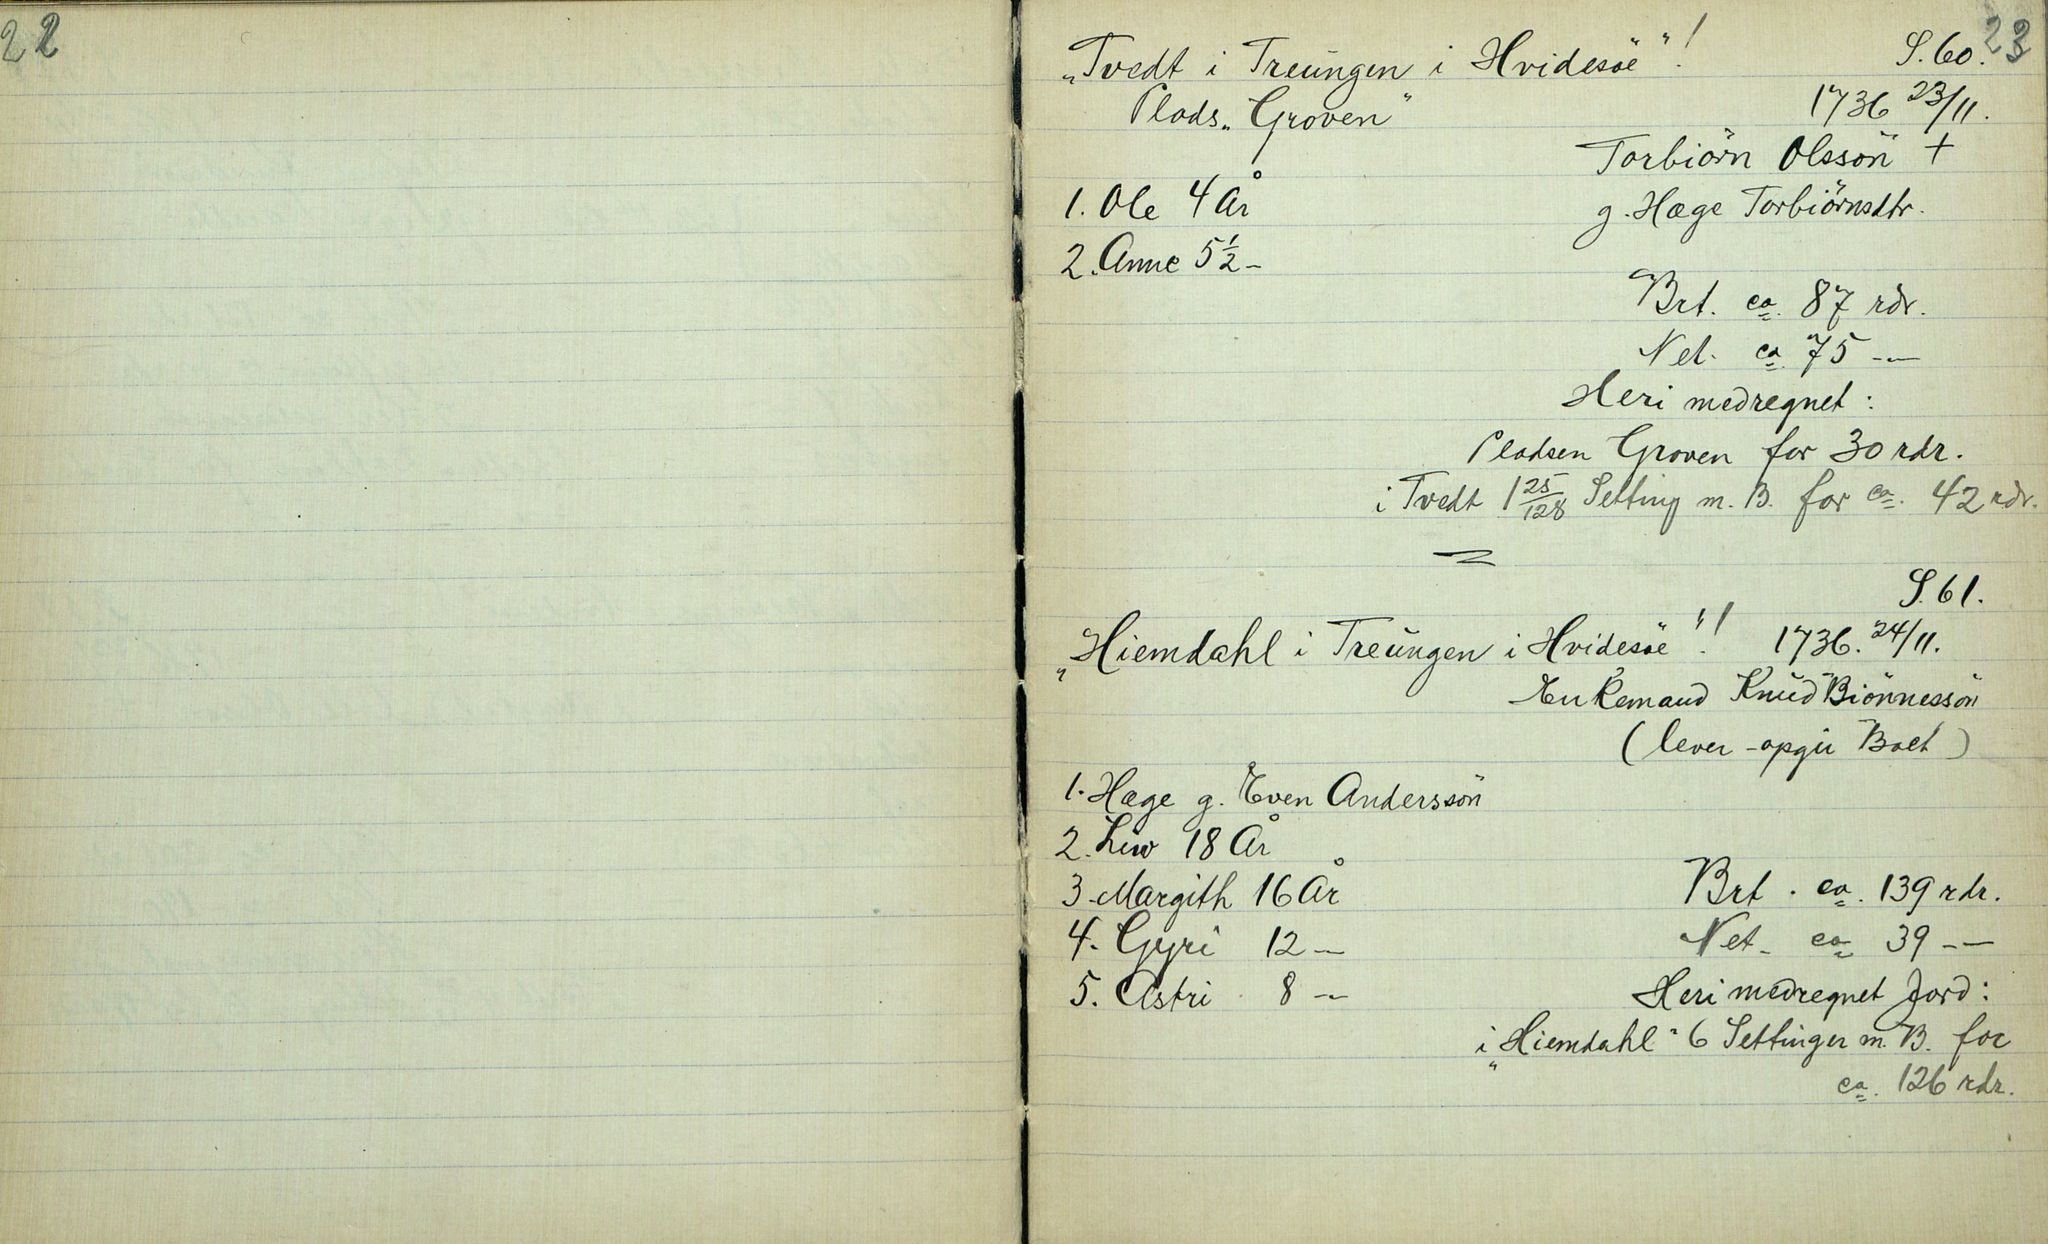 22
23
„Tvedt i Treungen i Hvidesöe"! S. 60.
Plads „Groven" 1736 23/11.
Torbiörn Olssön +
1. Ole 4 År g. Hæge Torbiörnsdtr.
2. Anne 5½ -
Brt. ca. 87 rdr.
Net. ca. 75 -"-
Heri medregnet:
Pladsen Groven for 30 rdr.
i Tvedt 1 25/128 Setting m. B. for ca. 42 rdr.
S. 61.
„Hiemdahl i Treungen i Hvidesöe"! 1736. 24/11.
Enkemand Knud Biönnessön
(lever - opgir Boet)
1. Hæge g. Even Anderssön
2. Liw 18 År
3. Margith 16 År Brt. ca. 139 rdr.
4. Gyri 12 - Net. ca 39 -"-
5. Astri 8 - Heri medregnet Jord:
i „Hiemdahl" 6 Settinger m. B. for
ca. 126 rdr.